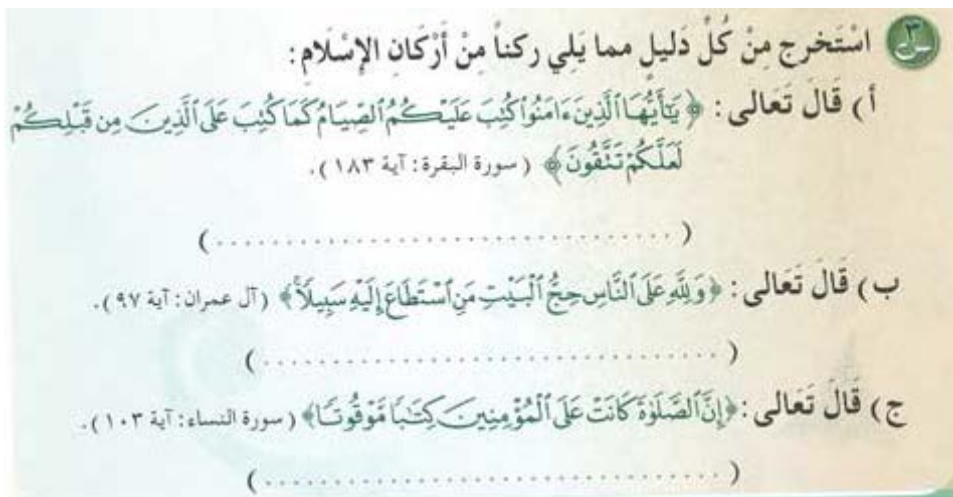 س٣ اسْتَخرج مِنْ كُلِّ دَليلٍ مما يَلِي ركناً مِنْ أَرْكَانِ الإِسْلَامِ :
أ ) قَالَ تَعَالى : ﴿ يَٰٓأَيُّهَا ٱلَّذِينَ ءَامَنُوا۟ كُتِبَ عَلَيْكُمُ ٱلصِّيَامُ كَمَا كُتِبَ عَلَى ٱلَّذِينَ مِن قَبْلِكُمْ
لَعَلَّكُمْ تَتَّقُونَ ﴾ ( سورة البقرة : آية ١٨٣ ) .
( . . . . . . . . . . . . . . . . . . . . . . . . . . . . . . . . . )
ب ) قَالَ تَعَالى : ﴿ وَلِلَّهِ عَلَى ٱلنَّاسِ حِجُّ ٱلْبَيْتِ مَنِ ٱسْتَطَاعَ إِلَيْهِ سَبِيلًا ﴾ (آل عمران : آية ٩٧ ) .
( . . . . . . . . . . . . . . . . . . . . . . . . . . . . . . . . . )
ج ) قَالَ تَعَالى : ﴿ إِنَّ ٱلصَّلَوٰةَ كَانَتْ عَلَى ٱلْمُؤْمِنِينَ كِتَٰبًا مَّوْقُوتًا ﴾ ( سورة النساء : آية ١٠٣ ) .
( . . . . . . . . . . . . . . . . . . . . . . . . . . . . . . . . . )